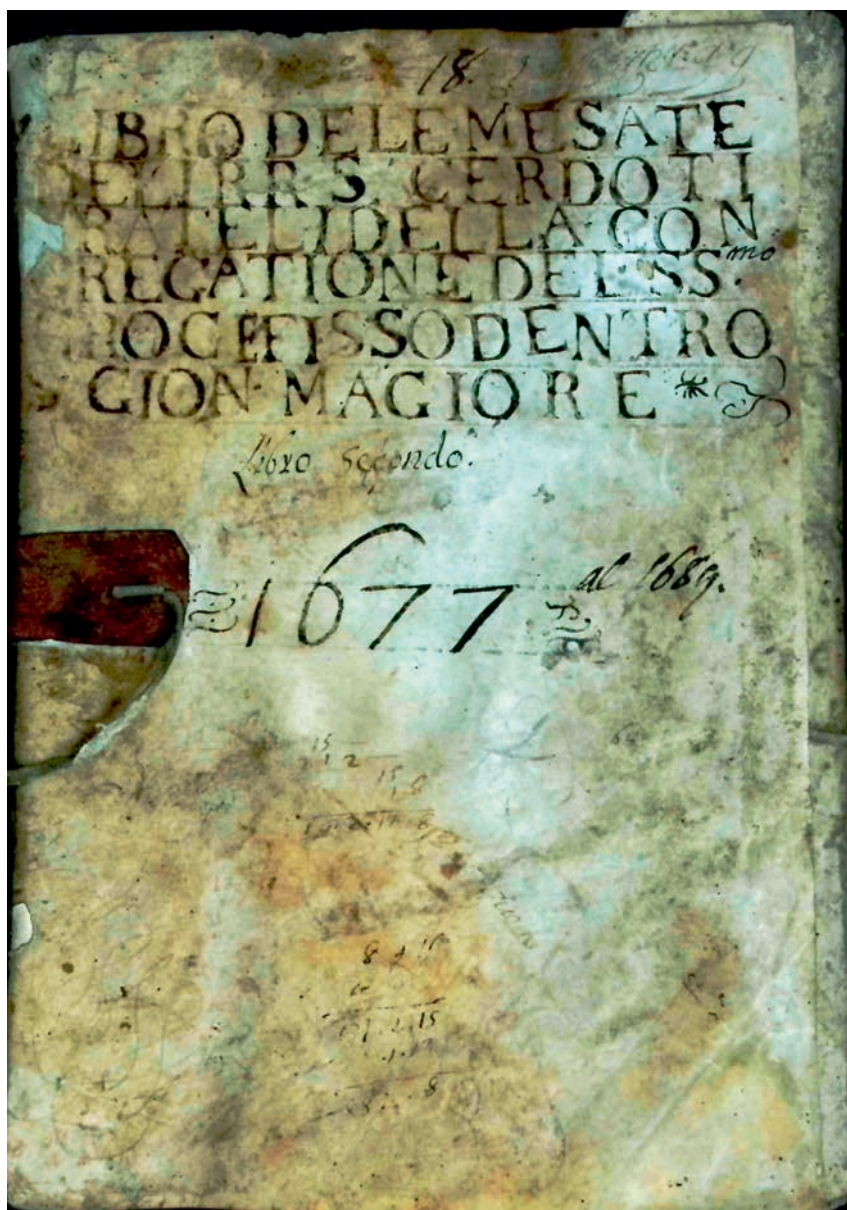 18.
LIBRO DELE MESATE
DELI RR S. CERDOTI
RATELI DELLA CON
REGATIONE DEL SS.mo
ROCEFISSO DENTRO
GION MAGIORE
Libro secondo.
1677 al 1689.
15
1 2
15 8
8 4 15
15
8